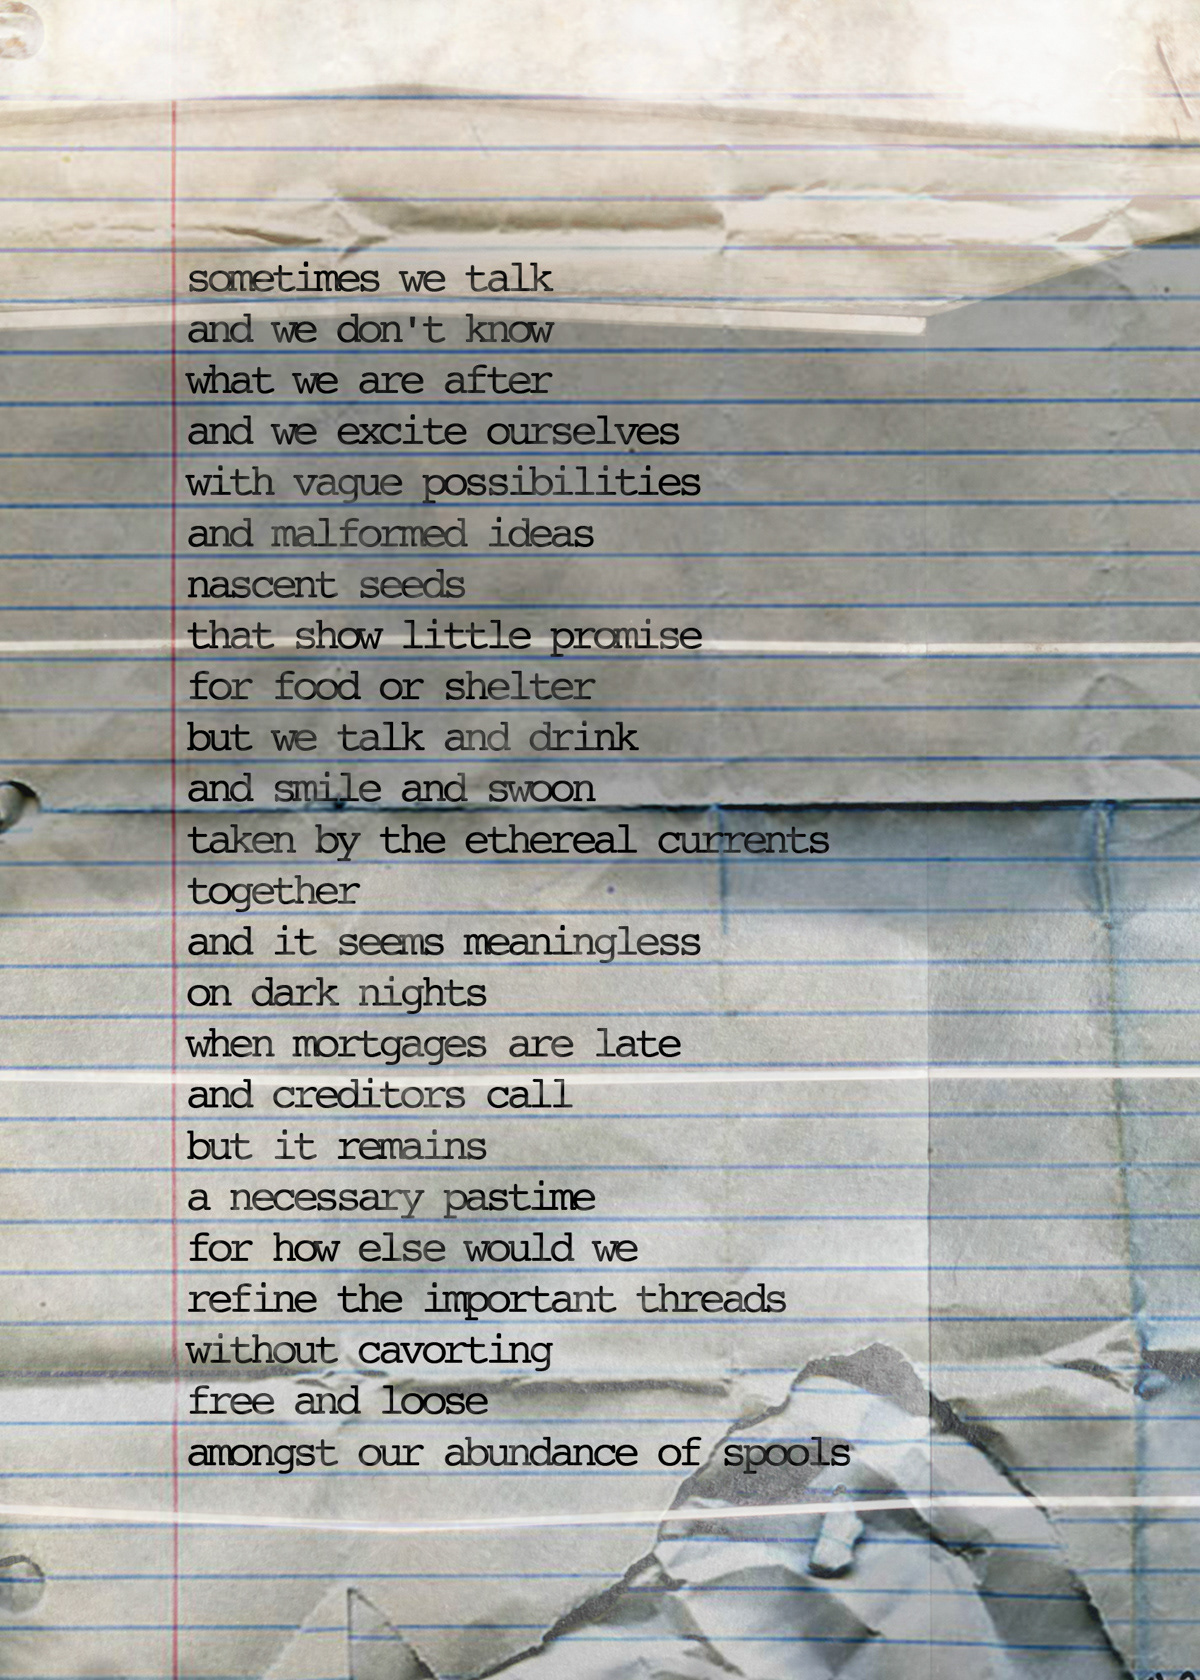 sometimes we talk
and we don't know
what we are after
and we excite ourselves
with vague possibilities
and malformed ideas
nascent seeds
that show little promise
for food or shelter
but we talk and drink
and smile and swoon
taken by the ethereal currents
together
and it seems meaningless
on dark nights
when mortgages are late
and creditors call
but it remains
a necessary pastime
for how else would we
refine the important threads
without cavorting
free and loose
amongst our abundance of spools